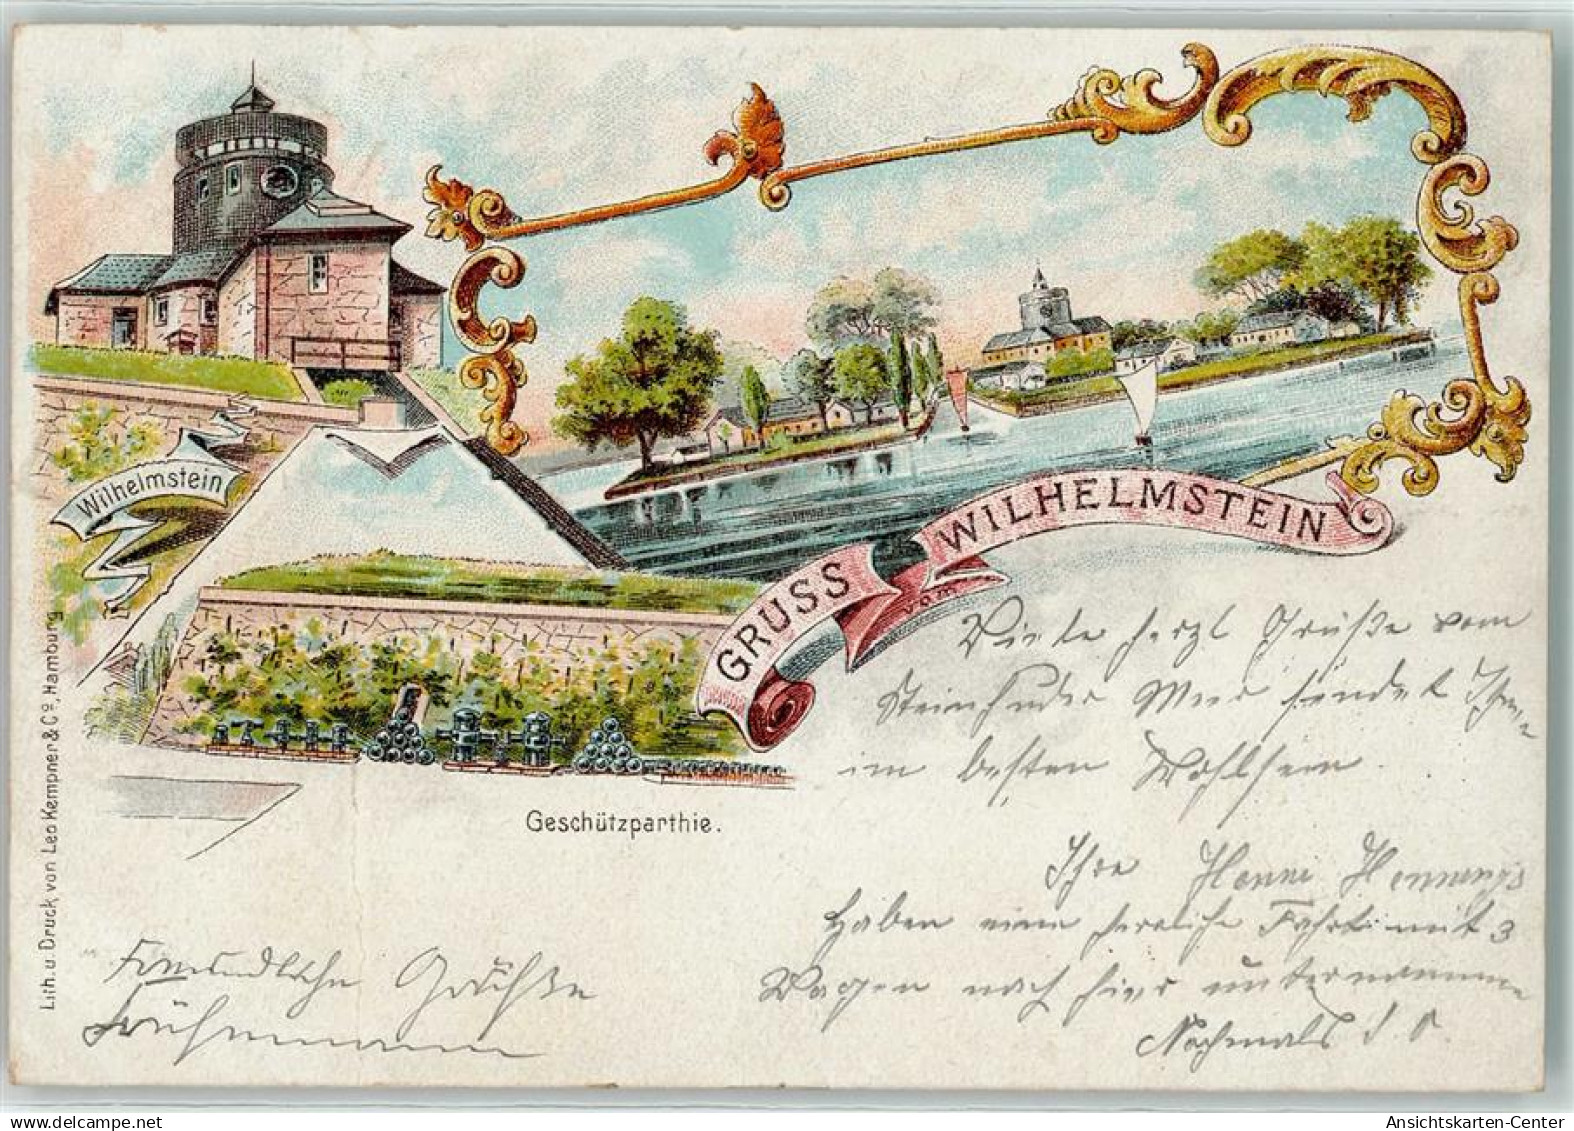 Wilhelmstein
GRUSS
vom
WILHELMSTEIN
Lith. u. Druck von Leo Kempner & Co, Hamburg
Geschützparthie.
Viele herzl Grüße vom
Steinhuder Meer sendet Ihnen
im besten Wohlsein.
Ihre Hennings
Haben eine herrliche Fahrt mit 3
Wagen nach hier unternommen
Nochmals d. O.
Freundliche Grüße
Frühmann
www.delcampe.net
Ansichtskarten-Center